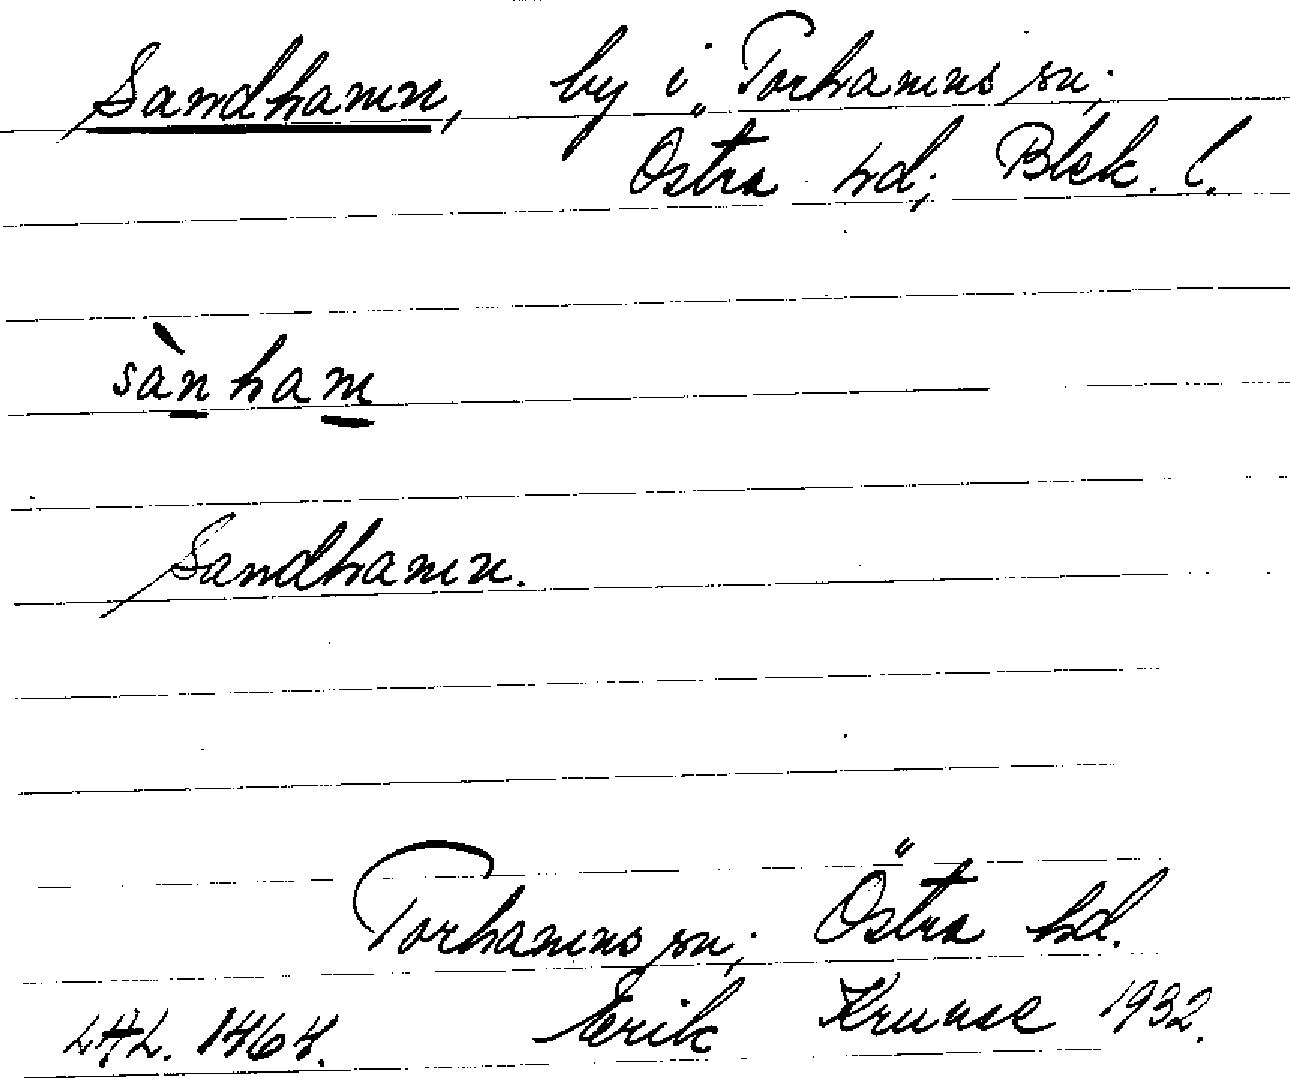 Sandhamn, by i Torhamns sn;
Östra hd; Blek. l.
sànham
Sandhamn.
Torhamns sn; Östra hd.
LAL. 1464. Erik Kruuse 1932.